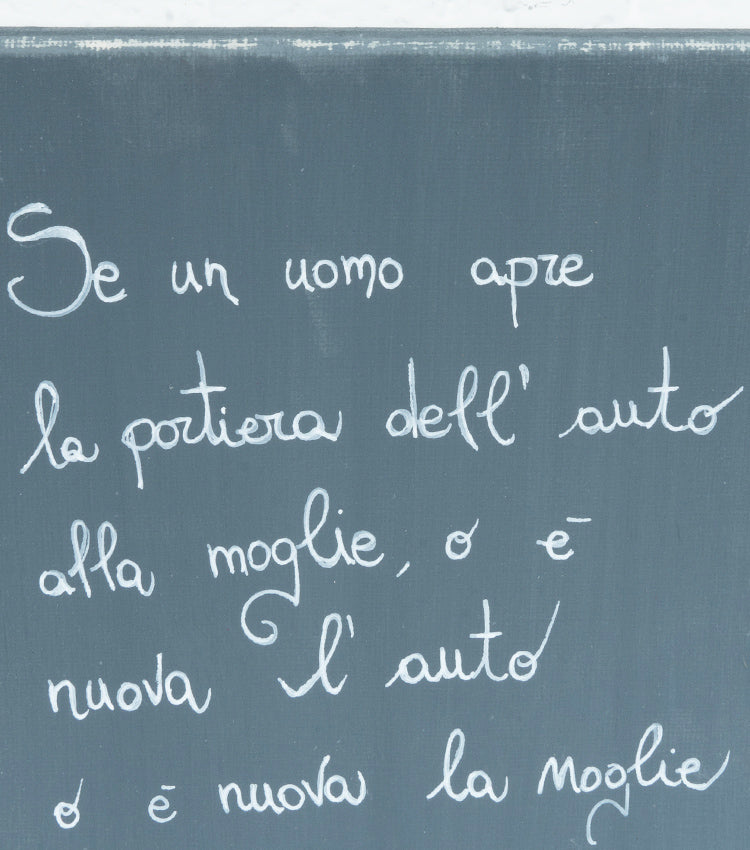 Se un uomo apre
la portiera dell' auto
alla moglie, o è
nuova l' auto
o è nuova la moglie